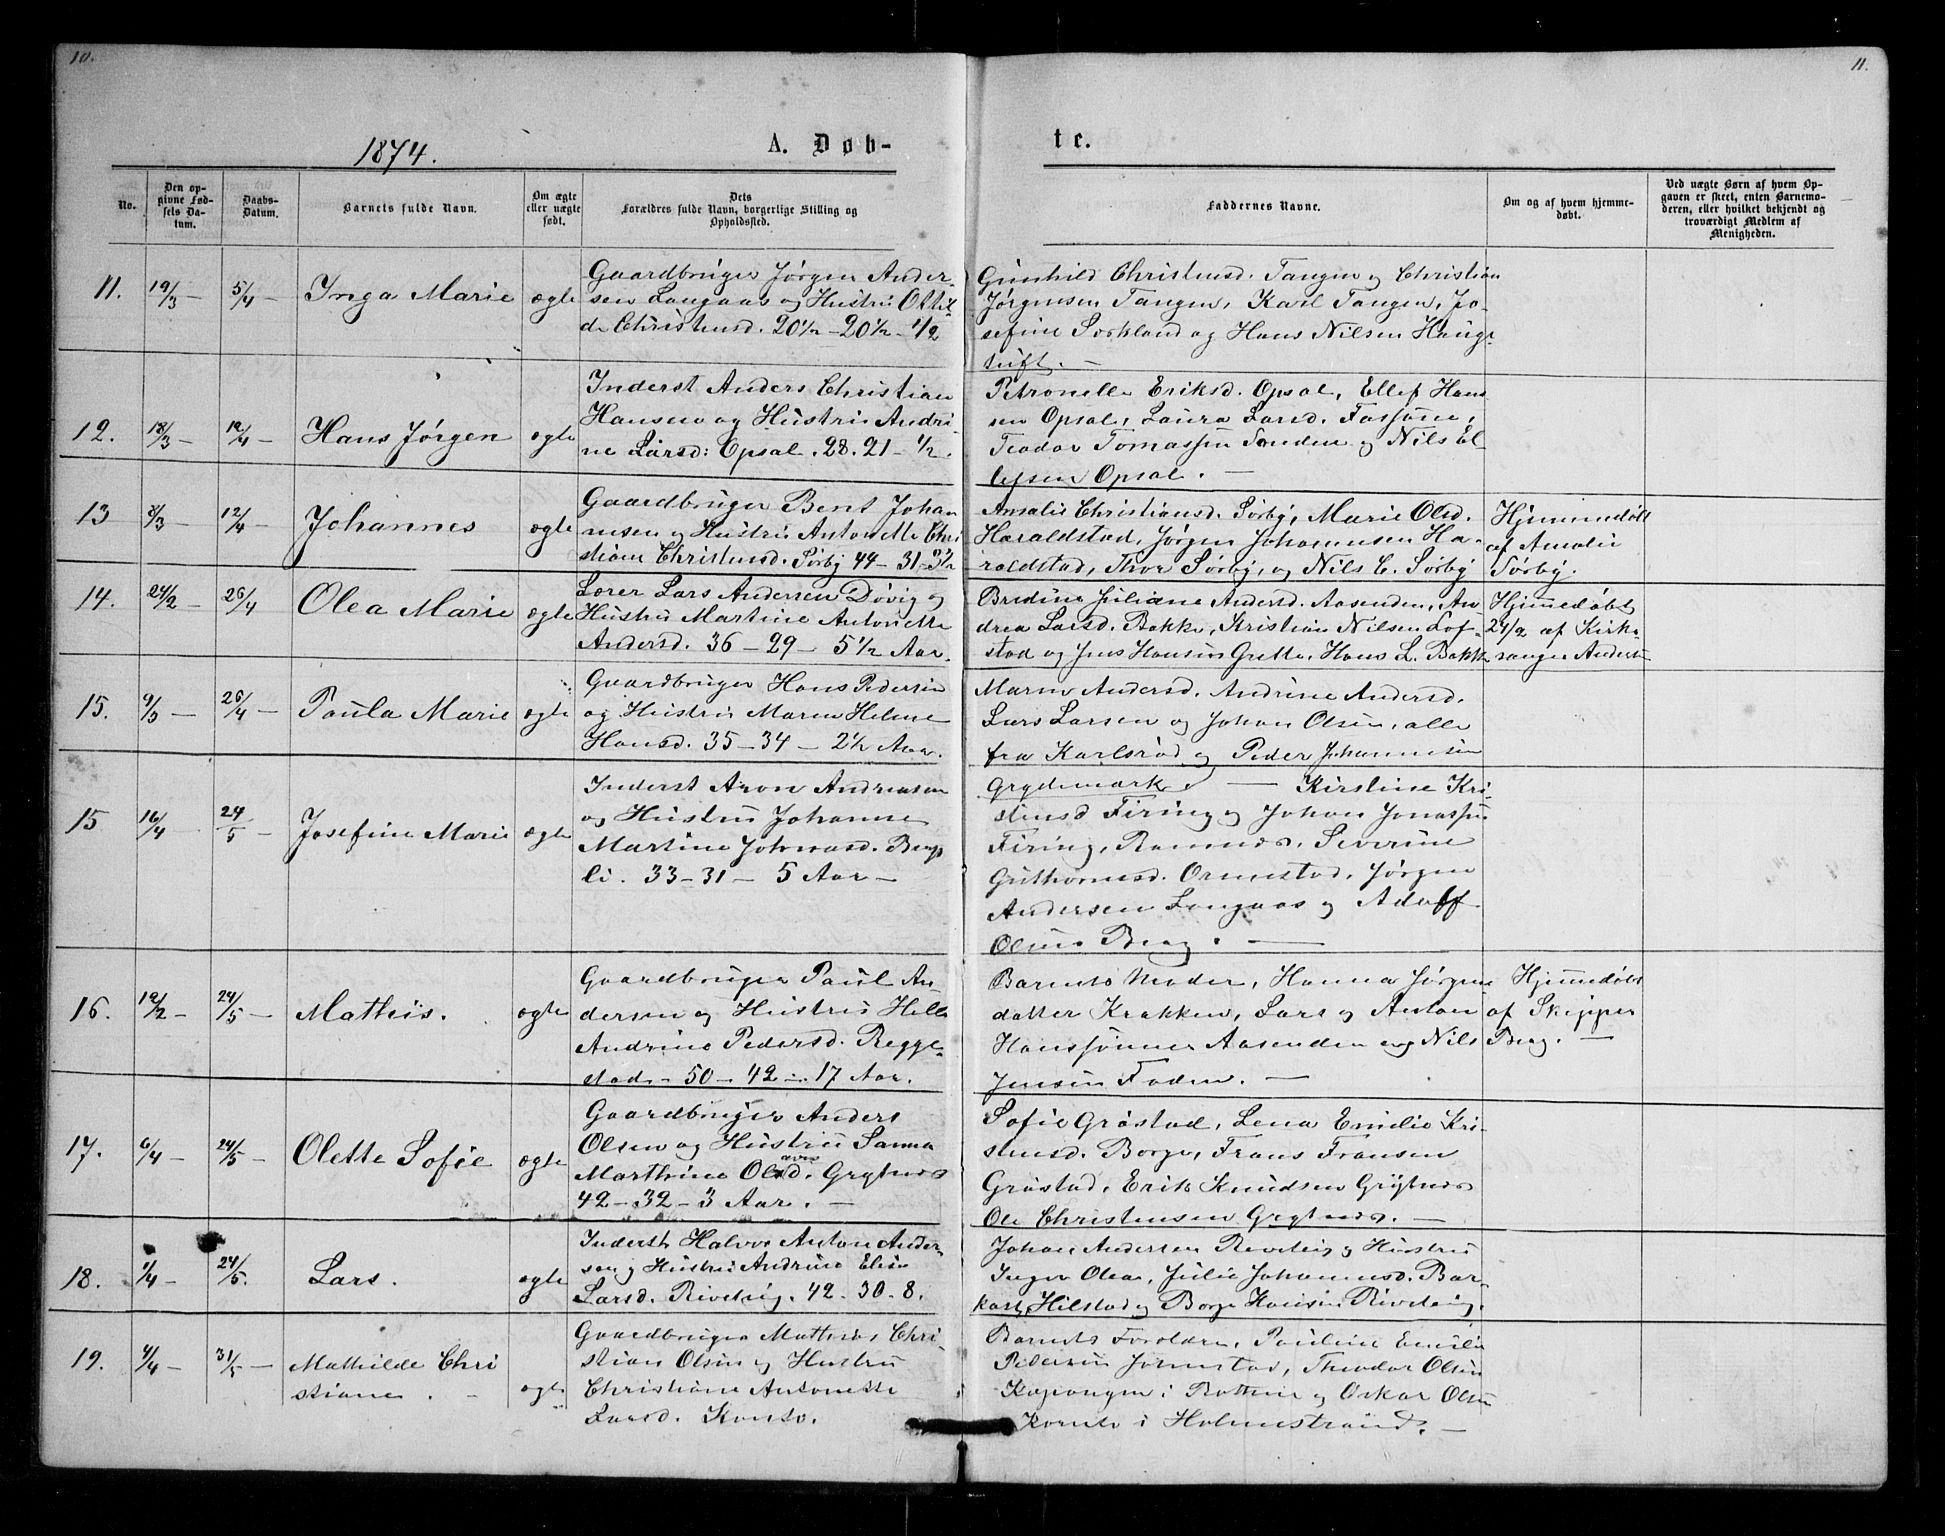 10.
11.
1874.
A. Døb-
te.
No.
Den op-
givne Fød-
sels Da-
tum.
Daabs-
Datum.
Barnets fulde Navn.
Om ægte
eller uægte
født.
Dets
Forældres fulde Navn, borgerlige Stilling og
Opholdssted.
Faddernes Navne.
Om og af hvem hjemme-
døbt.
Ved uægte Børn af hvem Op-
gaven er skeet, enten Barnemo-
deren, eller hvilket bekjendt og
troværdigt Medlem af
Menigheden.
11. 19/3 – 5/4 – Inga Marie ægte
Gaardbruger Jørgen Ander-
sen Langaas og Hustru Othil-
de Christensd. 20½ – 20½ – ½
Gunhild Christensd. Tangen og Christian
Jørgensen Tangen, Karl Tangen, Jo-
sefine Sorkland og Hans Nilsen Haugs-
tuft. –
12. 18/3 – 12/4 – Hans Jørgen ægte
Inderst Anders Christian
Hansen og Hustru Andri-
ne Larsd: Opsal. 28. 21 – ½.
Petronelle Eriksd. Opsal, Ellef Han-
sen Opsal, Laura Larsd.
Teodor Tomassen Sanden og Nils El-
lefsen Opsal. –
13 8/3 – 12/4 – Johannes ægte
Gaardbruger Bent Johan
nesen og Hustru Antonette Chri
stiane Christensd. Sørby 44 – 31 – 3½
Amalie Christiansd. Sørby, Marie Olsd.
Haraldstad, Jørgen Johannesen Ha-
raldstad, Thor Sørby, og Nils C. Sørby
Hjemmedøbt
af Amalie
Sørby.
14. 24/2 – 26/4 – Olea Marie ægte
Lærer Lars Andersen Døvig og
Hustru Martine Antonette
Andersd. 36 – 29 – 5½ Aar.
Bredine Juliane Andersd. Aasenden, An
drea Larsd. Bakke, Kristian Nilsen Lof-
stad og Jens Hansen Grette, Hans L. Bakke
Hjemmedøbt
24/2 af Kirke-
sanger Andersen
15. 9/3 – 26/4 – Paula Marie ægte
Gaardbruger Hans Pedersen
og Hustru Maren Helene
Hansd. 35 – 34 – 2½ Aar.
Maren Andersd. Andrine Andersd.
Lars Larsen og Johan Olsen, alle
fra Karlsrød og Peder Johannesen
15 16/4 – 24/5 – Josefine Marie ægte
Inderst Aron Andreasen
og Hustru Johanne
Martine Johnasd. Berg
li. 33 – 31 – 5 Aar –
Grydemark. – Kirstine Kri-
stensd Firing og Johan Jonassen
Firing, Ramnæs, Severine
Guthormsd. Ormestad, Jørgen
Andersen Langaas og Adolf
Olsen Berg. –
16. 12/2 – 24/5 – Mathis. ægte
Gaardbruger Paul An-
dersen og Hustru Helle
Andrine Pedersd. Regge-
stad – 50 – 42 – 17 Aar.
Barnets Moder, Hanna Jørgens
datter Krakken, Lars og Anton
Hanssønner Aasenden og Nils
Jensen Foden. –
Hjemmedøbt
af Skipper
Berg. –
17. 6/4 – 24/5 – Olette Sofie ægte
Gaardbruger Anders
Olsen og Hustru Sanna
Marthine Olavesd. Grytnæs
42 – 32 – 3 Aar. –
Sofie Grøstad, Lena Emilie Kri-
stensd. Borge, Frans Fransen
Grøstad, Erik Knudsen Grytnæs
Ole Christensen Grytnæs. –
18. 1/4 – 24/5. Lars. ægte
Inderst Halvor Anton Ander-
sen og Hustru Andrine Elise
Larsd. Rivelsrig. 42 – 30 – 8.
Johan Andersen Revelsrig og Hustru
Inger Olea, Julie Johannesd. Bar-
kast, Hilstad og Borge Hansen Rivelsrig.
19. 4/4 – 31/5 – Mathilde Chri
stiane. – ægte
Gaardbruger Mathias Chri-
stian Olsen og Hustru
Christiane Antonette
Larsd. Konto.
Barnets Foreldre, Pauline Emilie
Pedersen Jonestad, Theodor Olsen
i og Oskar Olsen
i Holmestrand. –